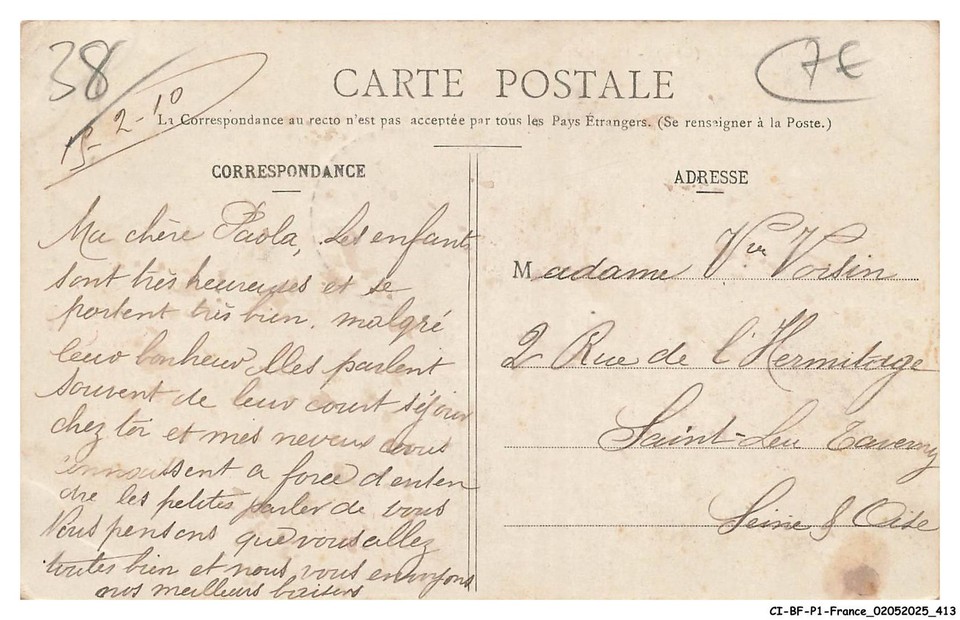 38
7€
15-2-10
CARTE POSTALE
La Correspondance au recto n'est pas acceptée par tous les Pays Étrangers. (Se renseigner à la Poste.)
CORRESPONDANCE
Ma chère Paola, Les enfants
sont très heureuses et se
portent très bien, malgré
leur bonheur Elles parlent
souvent de leur court séjour
chez toi et mes neveux vous
connaissent a force d'enten
dre les petites parler de vous
Nous pensons que vous allez
toutes bien et nous vous envoyons
nos meilleurs baisers
ADRESSE
Madame Vve Voisin
2 Rue de l'Hermitage
Saint-Leu Taverny
Seine & Oise
CI-BF-P1-France_02052025_413